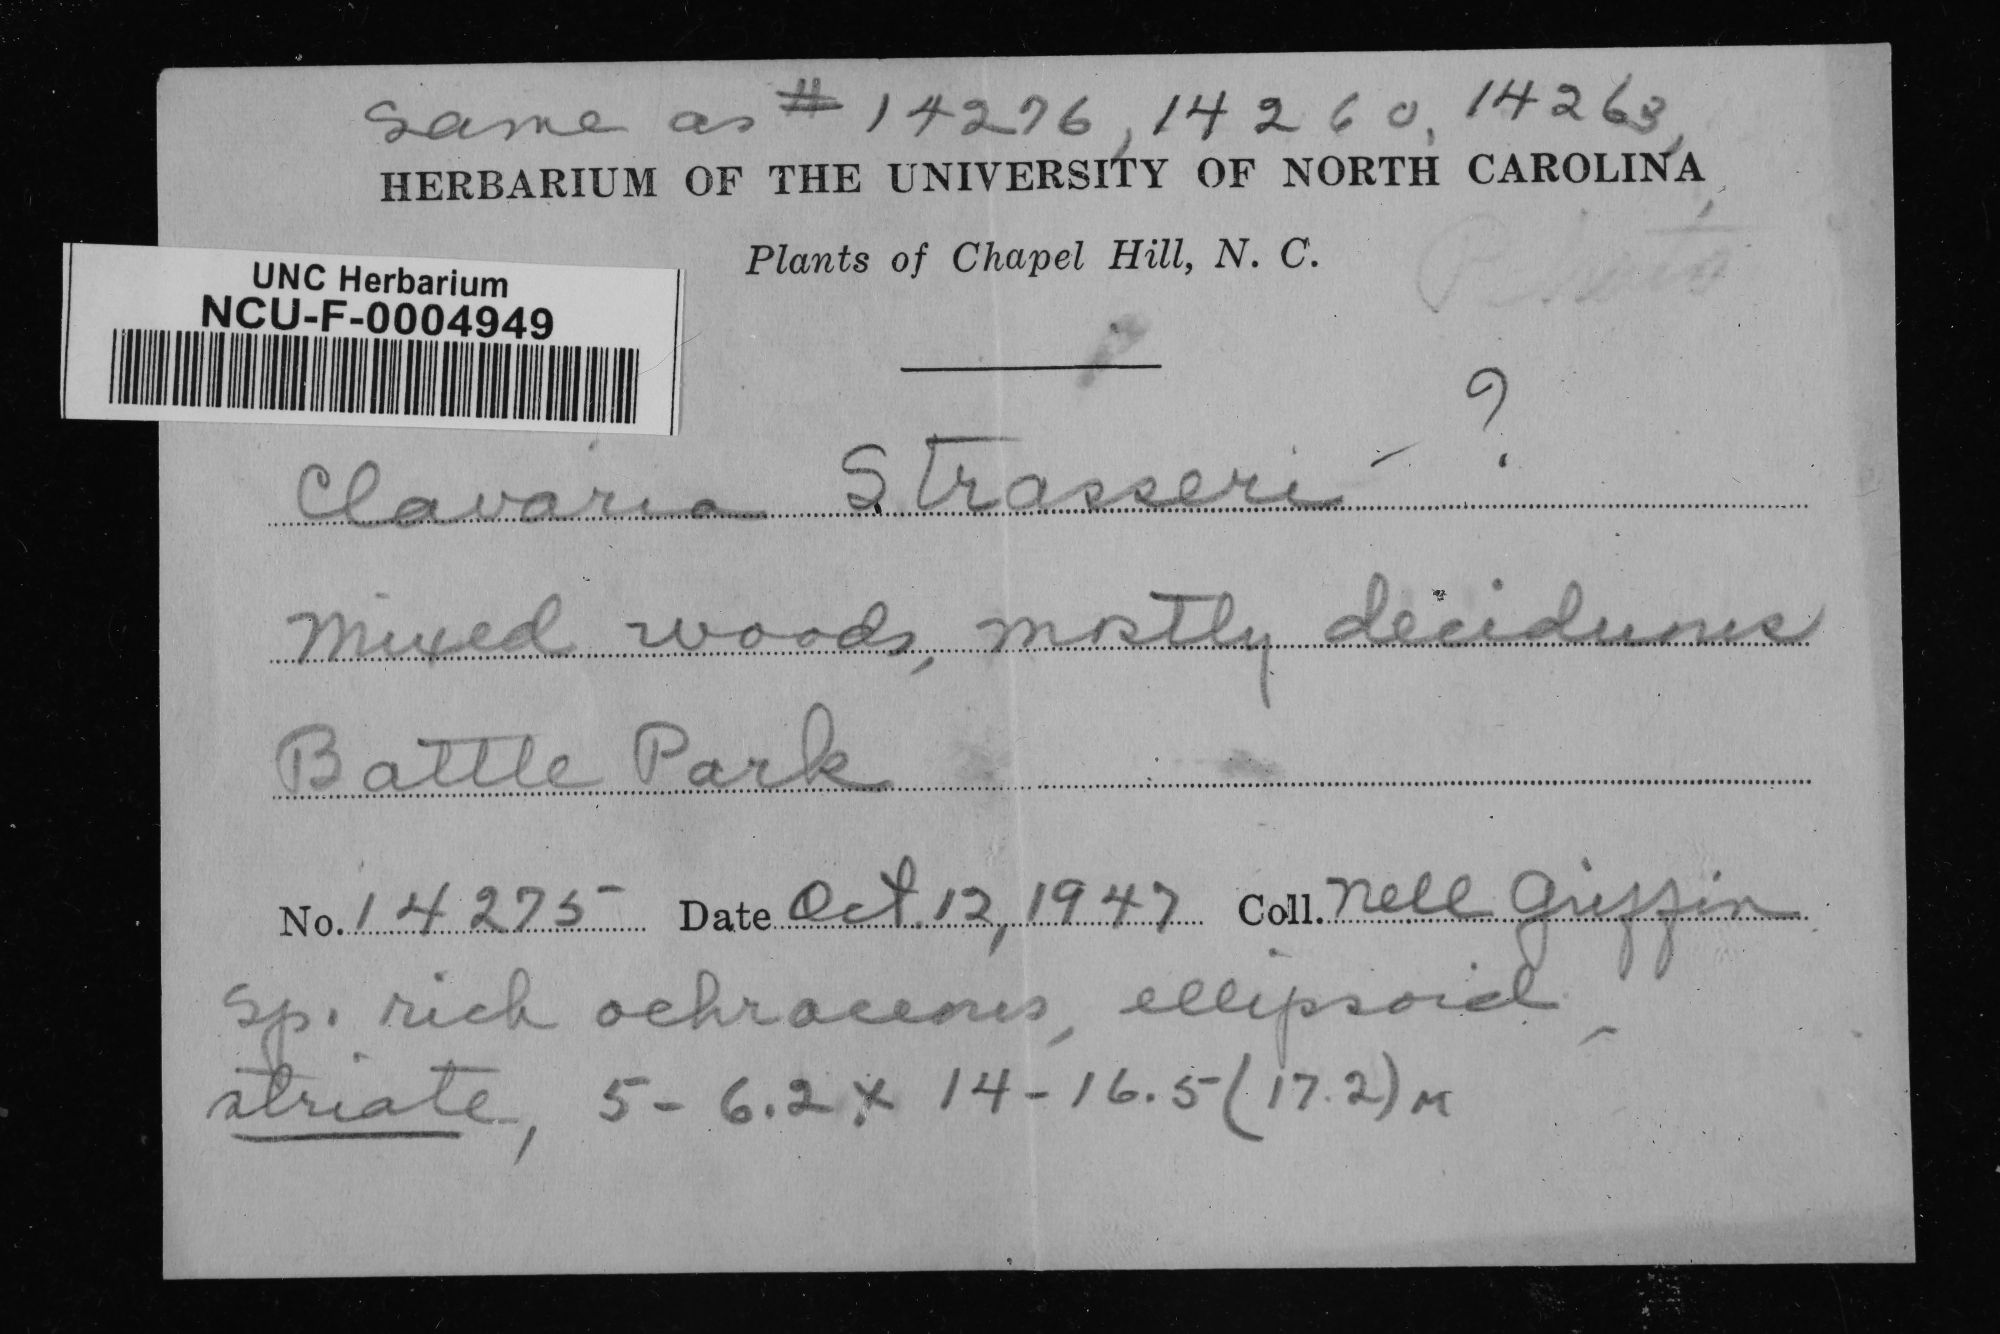 Same as # 14276, 14260, 14263,
HERBARIUM OF THE UNIVERSITY OF NORTH CAROLINA
Plants of Chapel Hill, N. C.
UNC Herbarium
NCU-F-0004949
Clavaria Strasseri - ?
Mixed woods, mostly deciduous
Battle Park
No. 14275 Date Oct. 12, 1947 Coll. Nell Griffin
Sp. rich ochraceous, ellipsoid,
striate, 5-6.2 x 14-16.5 (17.2) μ